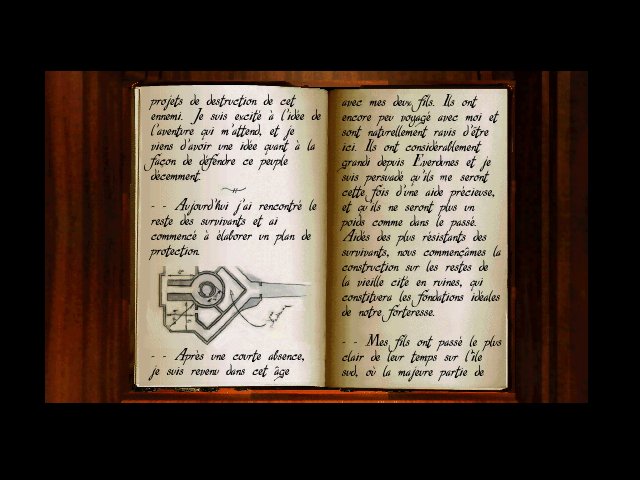 projets de destruction de cet
ennemi. Je suis excité à l'idée de
l'aventure qui m'attend, et je
viens d'avoir une idée quant à la
façon de défendre ce peuple
décemment.
- - Aujourd'hui j'ai rencontré le
reste des survivants et ai
commencé à élaborer un plan de
protection.
- - Après une courte absence,
je suis revenu dans cet âge
avec mes deux fils. Ils ont
encore peu voyagé avec moi et
sont naturellement ravis d'être
ici. Ils ont considérablement
grandi depuis Everdunes et je
suis persuadé qu'ils me seront
cette fois d'une aide précieuse,
et qu'ils ne seront plus un
poids comme dans le passé.
Aidés des plus résistants des
survivants, nous commençâmes la
construction sur les restes de
la vieille cité en ruines, qui
constituera les fondations idéales
de notre forteresse.
- - Mes fils ont passé le plus
clair de leur temps sur l'île
sud, où la majeure partie de